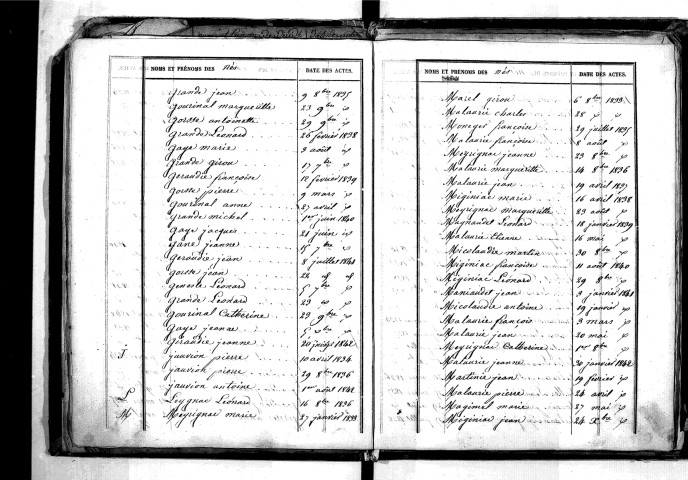 NOMS ET PRÉNOMS DES nés DATE DES ACTES.
Grande jean 9 8bre 1837
Gourinal marguerite 23 9bre
Gorsse antoinette 29 9bre
Grande Léonard 26 février 1838
Gaye marie 3 août
Grande girou 17 7bre
Geraudie françoise 12 février 1839
Gorsse pierre 9 mars
Gourinal anne 27 avril
Grande michel 1er juin 1840
Gaye jacques 21 juin
Jane jeanne 15 7bre
Geraudie jean 8 juillet 1841
Gorsse jean 28
Geneste Léonard 5 7bre
Grande Léonard 23
Gourinal Catherine 29 9bre
Gaye jeanne 5
Giraudie jeanne 20 juillet 1842
J jauvion pierre 10 avril 1834
jauvion pierre 29 8bre 1836
jauvion antoine 1er août 1842
L Leygnac Léonard 16 8bre 1836
M Meyrignac marie 27 janvier 1833
NOMS ET PRÉNOMS DES nés DATE DES ACTES.
Marel girou 6 8bre 1833
Malaurie charles 28
Moneger françoise 29 juillet 1835
Malaurie françoise 8 août
Meyrignac jeanne 23 8bre
Malaurie marguerite 14 8bre 1836
Malaurie jean 19 avril 1837
Miginiac marie 16 avril 1838
Meyrignac marguerite 23 août
Maynaudet Léonard 18 janvier 1839
Malaurie Etienne 16 mai
Nicolaudie martin 30 8bre
Miginiac françoise 11 août 1840
Miginiac Léonard 29 8bre
Maniaudet jean 3 janvier 1841
Nicolaudie antoine 19 janvier
Malaurie françois 3 mars
Malaurie jean 20 mai
Meyrignac Catherine 1er 8bre
Malaurie jeanne 30 janvier 1842
Martinie jean 19 février
Malaurie pierre 24 avril
Maginel marie 27 mai
Miginiac jean 24 Xbre